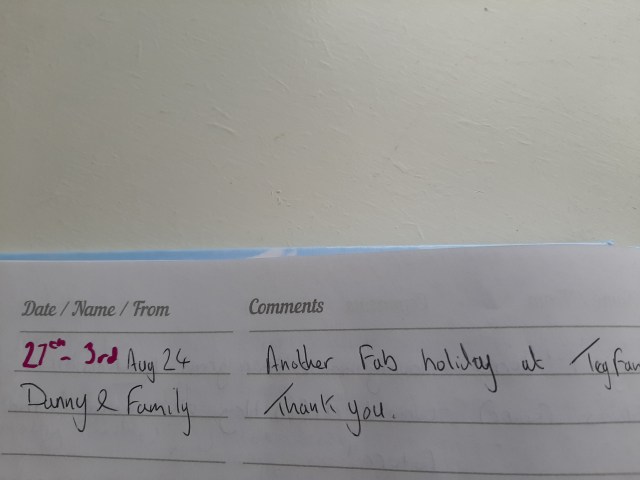 Date / Name / From
Comments
27th - 3rd Aug 24
Another Fab holiday at
Danny & Family
Thank you.